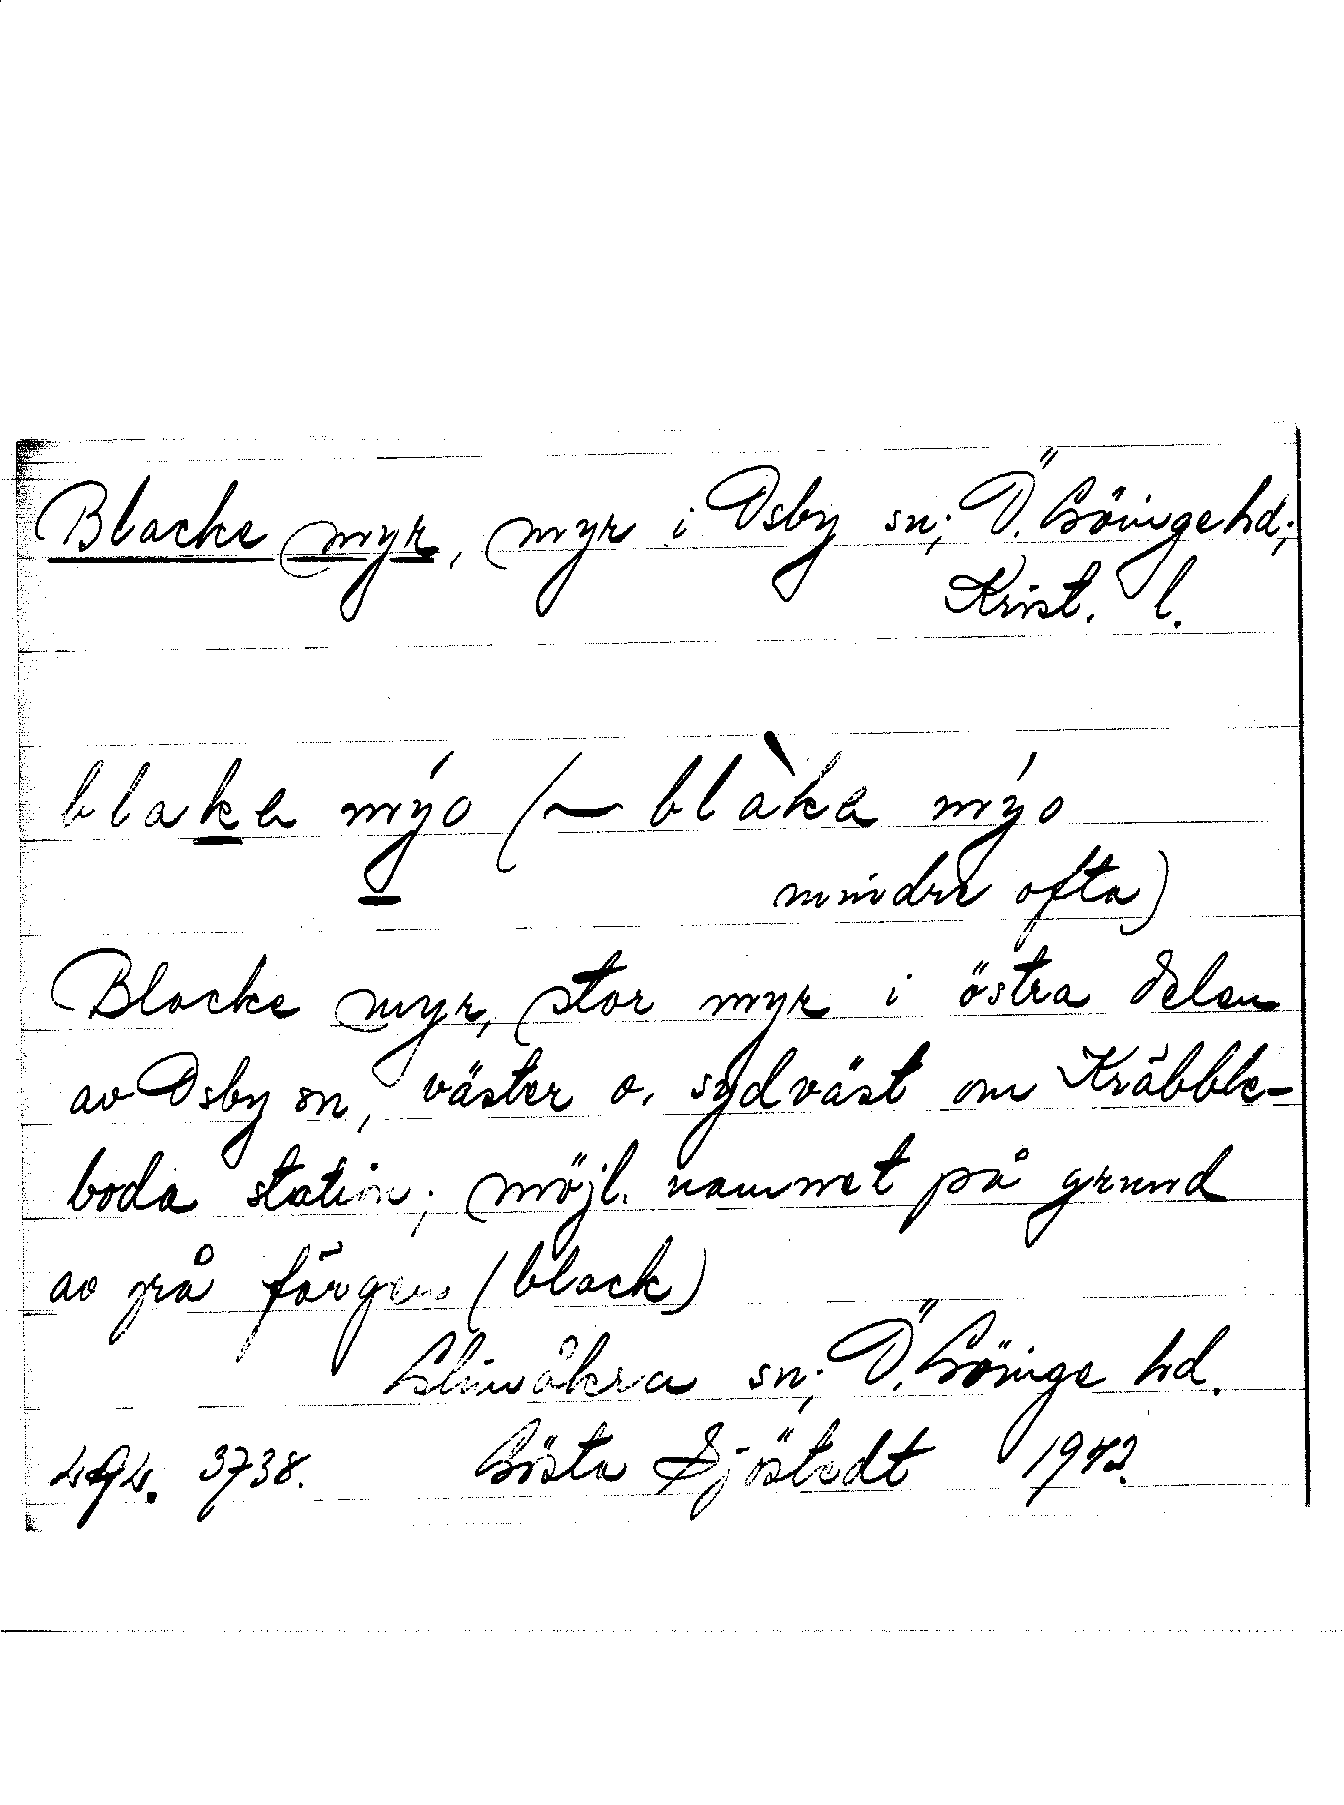 Blacke myr, myr i Osby sn; Ö. Göinge hd;
Krist. l.
blake mýo (~ blàke mýo
mindre ofta)
Blacke myr, stor myr i östra delen
av Osby sn, väster o. sydväst om Kräbble-
boda station; möjl. namnet på grund
av grå färgen (black)
Glimåkra sn; Ö. Göinge hd.
3738. Gösta Sjöstedt 1942.